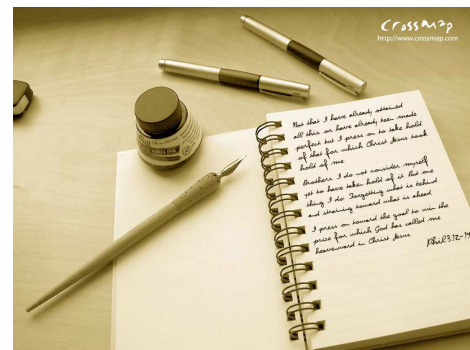 CrossMap
http://www.crossmap.com
Not that I have already attained
all this or have already been made
perfect but I press on to take hold
of that for which Christ Jesus took
hold of me.
Brothers I do not consider myself
yet to have taken hold of it But one
thing I do: Forgetting what is behind
and straining toward what is ahead
I press on toward the goal to win the
prize for which God has called me
heavenward in Christ Jesus
Phil 3:12-14